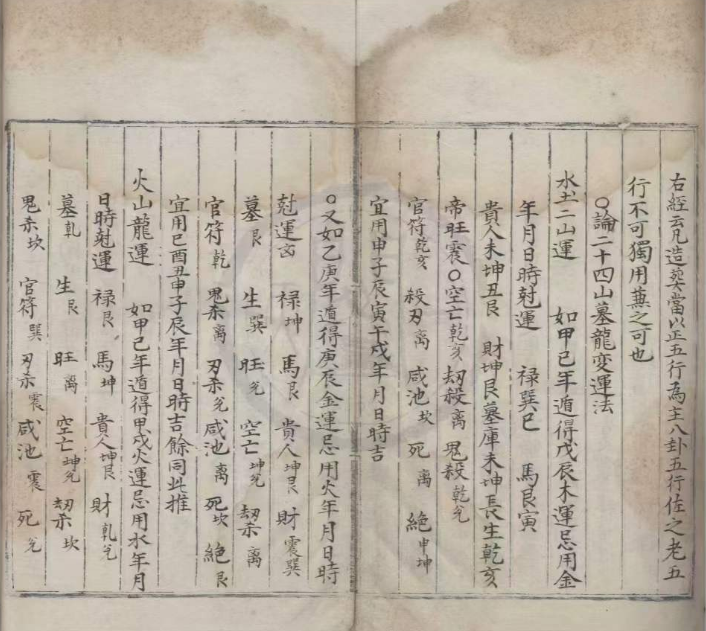 右經云凡造葬當以正五行為主八卦五行佐之老五
行不可獨用兼之可也
○論二十四山墓龍變運法
水土二山運 如甲已年遁得戊辰木運忌用金
年月日時尅運 禄巽巳 馬艮寅
貴人未坤丑艮 財坤艮墓庫未坤長生乾亥
帝旺震○空亡乾亥劫殺离鬼殺乾兊
官符乾亥 殺刃离 咸池坎 死离 絶申坤
宜用申子辰寅午戌年月日時吉
○又如乙庚年遁得庚辰金運忌用火年月日時
尅運 禄坤 馬艮 貴人坤艮 財震巽
墓艮 生巽 旺兊 空亡坤兊 劫杀离
官符乾 鬼杀离 刃杀兊咸池离 死坎 絶艮
宜用巳酉丑申子辰年月日時吉餘同此推
火山龍運 如甲己年遁得甲戌火運忌用水年月
日時尅運 禄艮 馬坤 貴人坤艮 財乾兊
墓乾 生艮 旺离 空亡坤兊 劫杀坎
鬼杀坎 官符巽 刃杀震咸池震 死兊